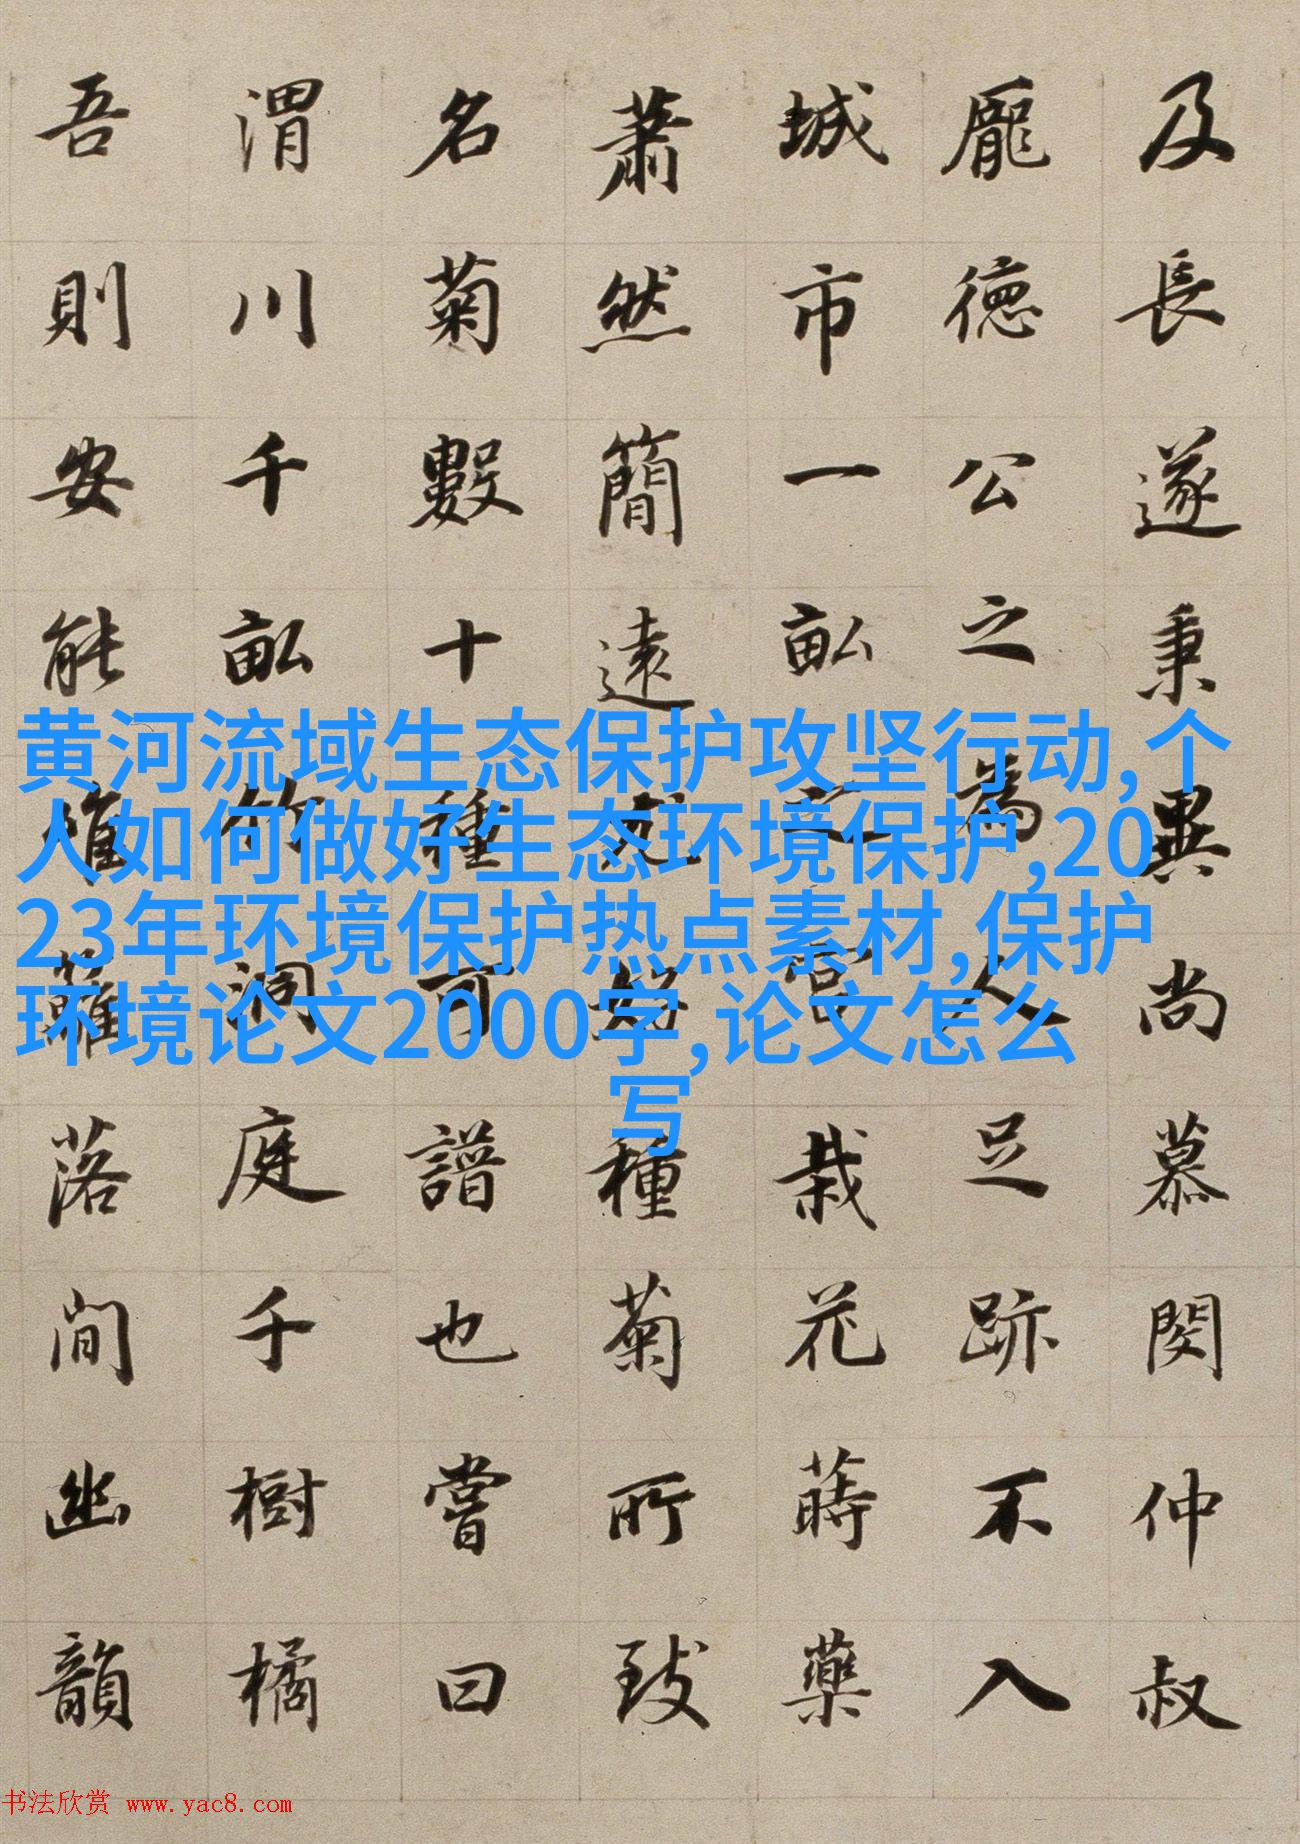 及長遂秉異尚慕閔仲叔
龐德公之為人足跡不入
城市一畝之宮栽花蒔藥
蕭然簡遠尤好種菊所致
名菊數十種可譜也嘗曰
渭川千畝竹洞庭千樹橘
吾則安能惟蘿落間幽韻
黄河流域生态保护攻坚行动,个
人如何做好生态环境保护,20
23年环境保护热点素材,保护
环境论文2000字,论文怎么
写
书法欣赏 www.yac8.com